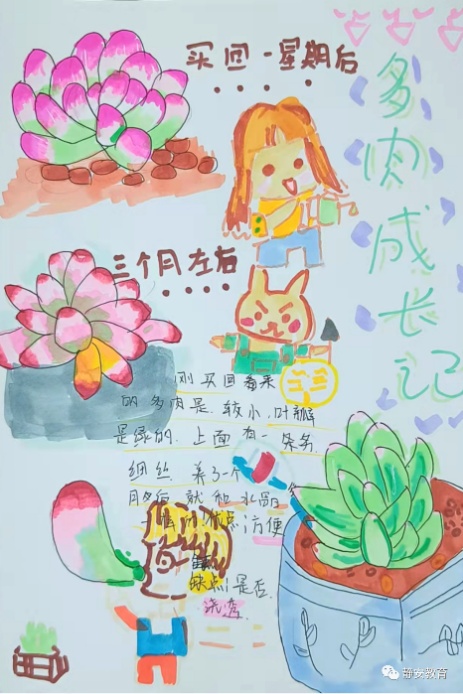 多肉成长记
买回一星期后
三个月左右
刚买回看来
的多肉是较小,叶瓣
是绿的.上面有一条条
细丝.养了3个
月多后就和
方便
缺点:是否
浇湾
静安教育